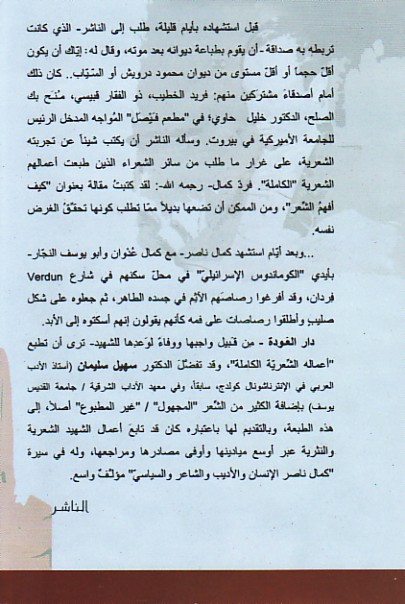 قبل استشهاده بأيام قليلة، طلب إلى الناشر- الذي كانت
تربطه به صداقة - أن يقوم بطباعة ديوانه بعد موته، وقال له: إيّاك أن يكون
أقلّ حجماً أو أقلّ مستوى من ديوان محمود درويش أو السّيّاب.. كان ذلك
أمام أصدقاءَ مشتركين منهم: فريد الخطيب، ذو الفقار قبيسي، مُنَح بك
الصلح، الدكتور خليل حاوي؛ في "مطعم فيْصَل" المُواجه المدخل الرئيس
للجامعة الأميركية في بيروت. وسأله الناشر أن يكتب شيئاً عن تجربته
الشعرية، على غرار ما طلب من سائر الشعراء الذين طبعت أعمالهم
الشعرية "الكاملة". فردّ كمال- رحمه الله-: لقد كتبتُ مقالة بعنوان "كيف
أفهمُ الشِّعر"، ومن الممكن أن تضعها بديلاً ممّا تطلب كونها تحقّقُ الغرض
نفسه.
...وبعد أيّام استشهد كمال ناصر- مع كمال عُدْوان وأبو يوسف النجّار-
بأيدي "الكوماندوس الإسرائيليّ" في محلّ سكنهم في شارع Verdun
فردان، وقد أفرغوا رصاصهم الآثِم في جسده الطاهر، ثم جعلوه على شكل
صليبٍ وأطلقوا رصاصات على فمه كأنهم يقولون إنهم أسكتوه إلى الأبد.
دار العَودة - من قبيل واجبها ووفاءً لوَعدِها للشهيد- ترى أن تطبع
"أعماله الشعريّة الكاملة"، وقد تفضّل الدكتور سهيل سليمان (أستاذ الأدب
العربي في الإنترناشونال كولدج، سابقاً، وفي معهد الآداب الشرقية / جامعة القديس
يوسف) بإضافة الكثير من الشِّعر "المجهول" / "غير المطبوع" أصلاً، إلى
هذه الطبعة، وبالتقديم لها باعتباره كان قد تابعَ أعمال الشهيد الشعرية
والنثرية عبر أوسع ميادينها وأوفى مصادرها ومراجعها، وله في سيرة
"كمال ناصر الإنسان والأديب والشاعر والسياسيّ" مؤلَّفٌ واسع.
الناشر